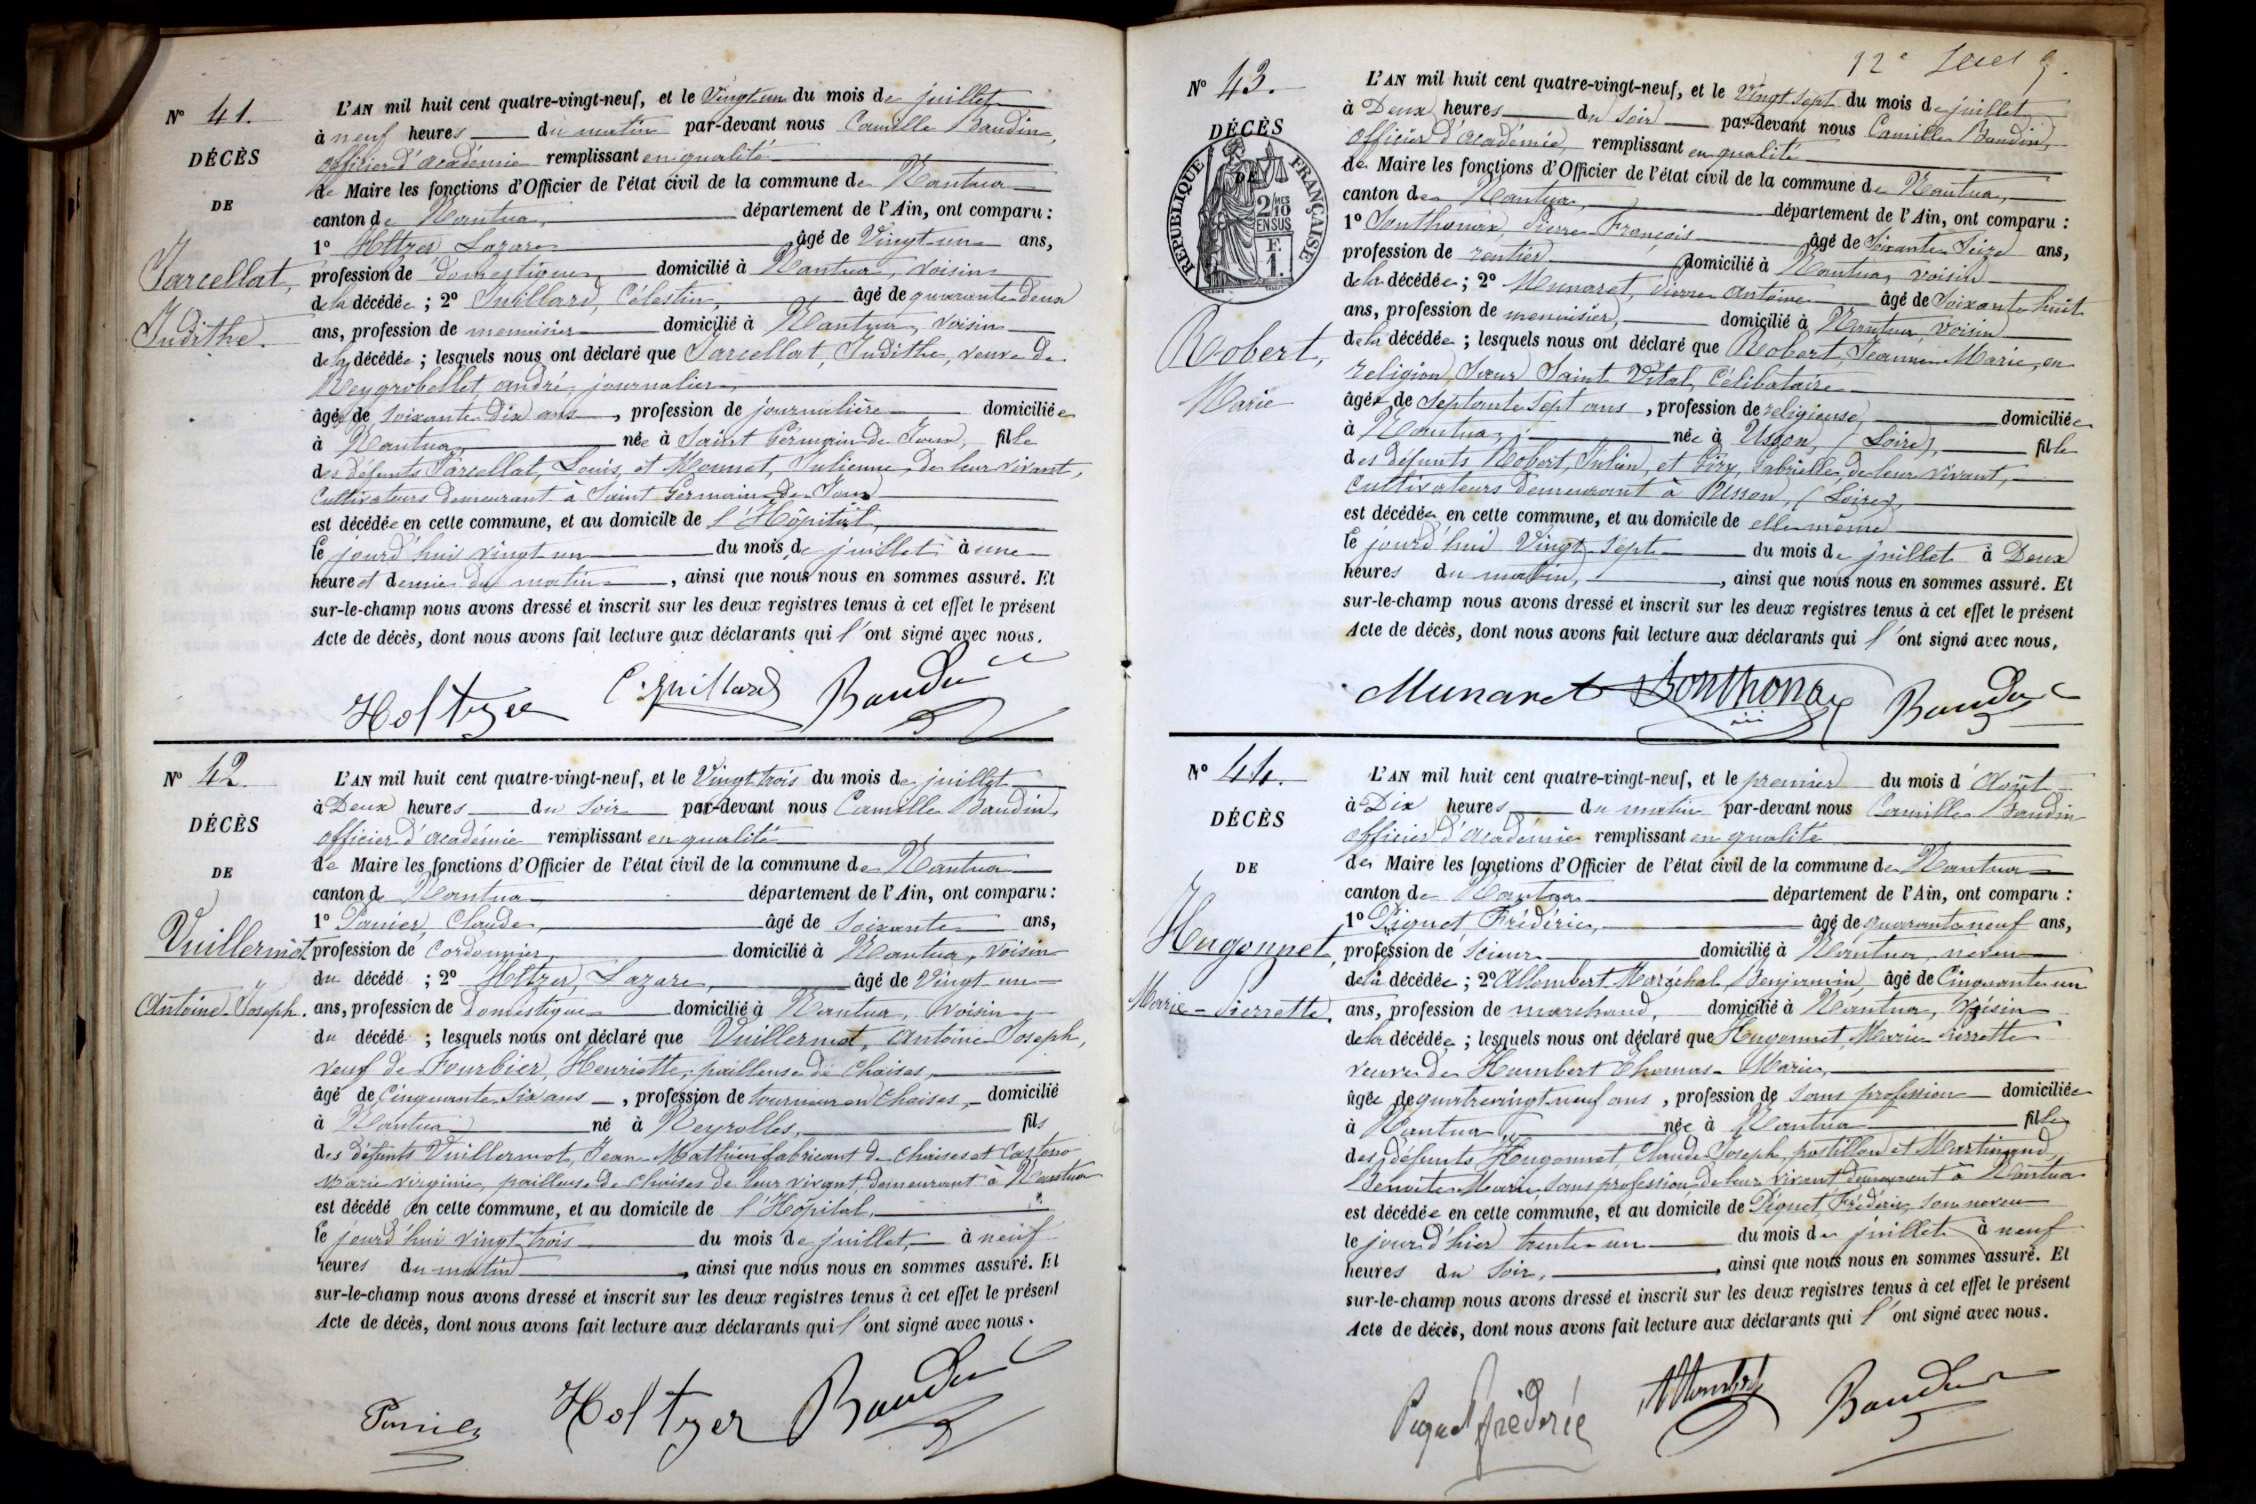 N° 41.
DÉCÈS
DE
Jarcellat,
Judithe.
L'AN mil huit cent quatre-vingt-neuf, et le Vingt un du mois de juillet
à neuf heures du matin par-devant nous Camille Baudin,
officier d'académie remplissant en qualité
de Maire les fonctions d'Officier de l'état civil de la commune de Nantua
canton de Nantua, département de l'Ain, ont comparu :
1° Holtzer Lazare âgé de Vingt un ans,
profession de domestique, domicilié à Nantua, voisin
de la décédée ; 2° Juillard, Célestin, âgé de quarante deux
ans, profession de menuisier domicilié à Nantua, voisin
de la décédée ; lesquels nous ont déclaré que Jarcellat, Judithe, veuve de
Neyrobellet, andré, journalier,
âgée de soixante Dix ans, profession de journalière domiciliée
à Nantua, née à Saint Germain de Joux, fille
des défunts Jarcellat, Louis, et Monnet, Julienne, de leur vivant,
Cultivateurs demeurant à Saint Germain de Joux
est décédée en cette commune, et au domicile de l'Hôpital,
le jourd'hui vingt un du mois de juillet à une
heure et demie du matin, ainsi que nous nous en sommes assuré. Et
sur-le-champ nous avons dressé et inscrit sur les deux registres tenus à cet effet le présent
Acte de décès, dont nous avons fait lecture aux déclarants qui l'ont signé avec nous.
Holtzer C. Juillard Baudin
N° 42.
DÉCÈS
DE
Vuillermot
Antoine Joseph.
L'AN mil huit cent quatre-vingt-neuf, et le Vingt trois du mois de juillet
à Deux heures du Soir par-devant nous Camille Baudin,
officier d'académie remplissant en qualité
de Maire les fonctions d'Officier de l'état civil de la commune de Nantua
canton de Nantua département de l'Ain, ont comparu :
1° Panier, Claude, âgé de soixante ans,
profession de Cordonnier, domicilié à Nantua, voisin
du décédé ; 2° Holtzer, Lazare, âgé de vingt un
ans, profession de Domestique domicilié à Nantua, voisin
du décédé ; lesquels nous ont déclaré que Vuillermot, Antoine Joseph,
veuf de Fourbier, Henriette, pailleuse de Chaises,
âgé de Cinquante Six ans, profession de tourneur en Chaises, domicilié
à Nantua né à Neyrolles, fils
des défunts Vuillermot, Jean Mathieu fabricant de chaises et
Marie Virginie, pailleuse de Chaises de leur vivant, demeurant à Nantua
est décédé en cette commune, et au domicile de l'Hôpital.
le jourd'hui vingt trois du mois de juillet, à neuf
heures du matin, ainsi que nous nous en sommes assuré. Et
sur-le-champ nous avons dressé et inscrit sur les deux registres tenus à cet effet le présent
Acte de décès, dont nous avons fait lecture aux déclarants qui l'ont signé avec nous.
Panier Holtzer Baudin
N° 43.
DÉCÈS
DE
RÉPUBLIQUE FRANÇAISE
2/10 MES
EN SUS
F.
1.
Robert,
Marie
L'AN mil huit cent quatre-vingt-neuf, et le Vingt Sept du mois de juillet
à Deux heures du Soir par-devant nous Camille Baudin,
officier d'académie, remplissant en qualité
de Maire les fonctions d'Officier de l'état civil de la commune de Nantua,
canton de Nantua, département de l'Ain, ont comparu :
1° Sonthonax, Pierre François âgé de Soixante Seize ans,
profession de rentier domicilié à Nantua, voisin
de la décédée ; 2° Munaret, Pierre Antoine âgé de Soixante huit
ans, profession de menuisier, domicilié à Nantua voisin
de la décédée ; lesquels nous ont déclaré que Robert, Jeanne Marie, en
religion, Soeur Saint Vital, Célibataire
âgée de Septante Sept ans, profession de religieuse, domiciliée
à Nantua, née à Usson, (Loire), fille
des défunts Robert, Julien, et Géry, Gabrielle, de leur vivant,
Cultivateurs demeurant à Usson, (Loire),
est décédée en cette commune, et au domicile de elle même
le jourd'hui Vingt Sept du mois de juillet à Deux
heures du matin, ainsi que nous nous en sommes assuré. Et
sur-le-champ nous avons dressé et inscrit sur les deux registres tenus à cet effet le présent
Acte de décès, dont nous avons fait lecture aux déclarants qui l'ont signé avec nous,
Munaret Sonthonax Baudin
N° 44.
DÉCÈS
DE
Hugonnet,
Marie-Pierrette.
L'AN mil huit cent quatre-vingt-neuf, et le premier du mois d'Août
à Dix heures du matin par-devant nous Camille Baudin
officier d'académie remplissant en qualité
de Maire les fonctions d'Officier de l'état civil de la commune de Nantua
canton de Nantua département de l'Ain, ont comparu :
1° Piquet Frédéric, âgé de quarante neuf ans,
profession de Scieur domicilié à Nantua, neveu
de la décédée ; 2° Allombert Maréchal Benjamin, âgé de Cinquante un
ans, profession de marchand, domicilié à Nantua, voisin
de la décédée ; lesquels nous ont déclaré que Hugonnet, Marie Pierrette
veuve de Humbert Thomas Marie,
âgée de quatrevingt neuf ans, profession de Sans profession domiciliée
à Nantua, née à Nantua fille
des défunts Hugonnet, Claude Joseph, postillon et Martinand,
Benoite Marie, sans profession, de leur vivant demeurant à Nantua
est décédée en cette commune, et au domicile de Piquet, Frédéric, son neveu
le jour d'hier trente un du mois de juillet à neuf
heures du Soir, ainsi que nous nous en sommes assuré. Et
sur-le-champ nous avons dressé et inscrit sur les deux registres tenus à cet effet le présent
Acte de décès, dont nous avons fait lecture aux déclarants qui l'ont signé avec nous.
Piquet frédéric Allombert Baudin